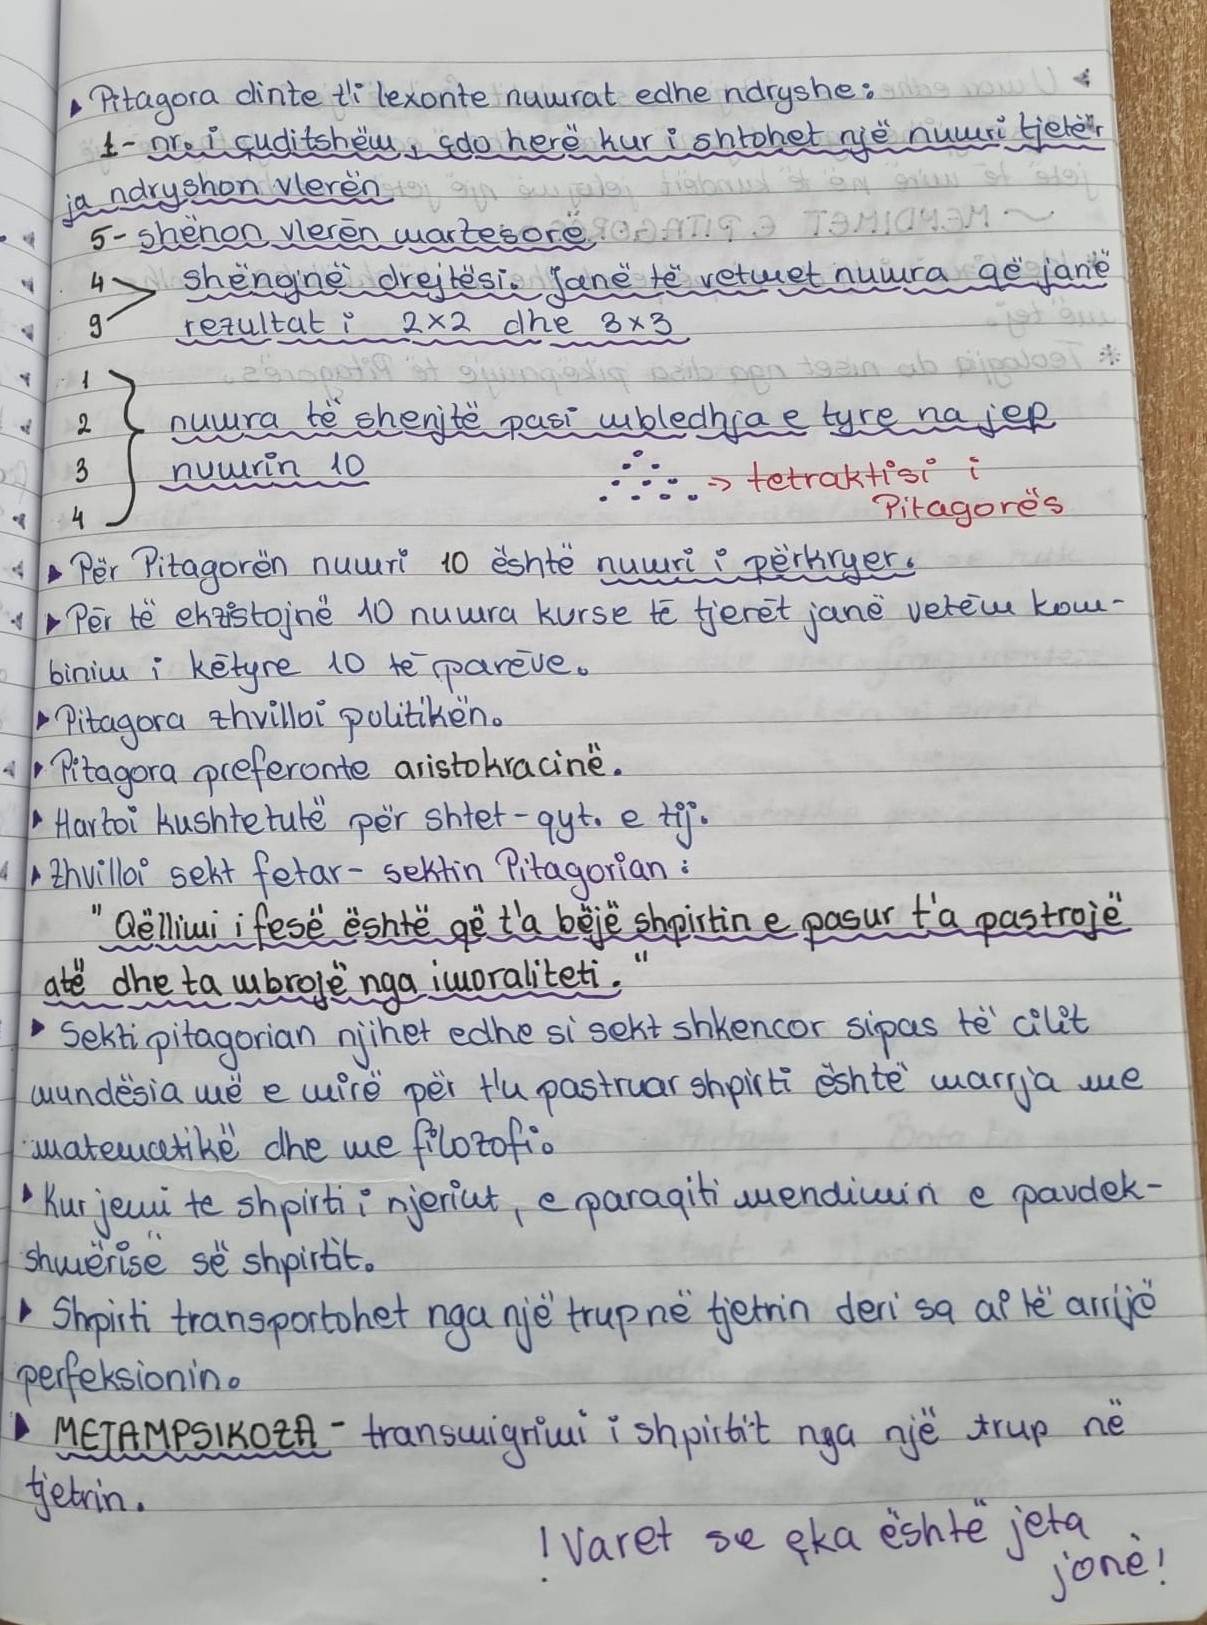 ▸ Pitagora dinte t'i lexonte numrat edhe ndryshe:
1- nr. i çuditshëm, çdo herë kur i shtohet një numri tjetër
ja ndryshon vlerën
5- shënon vlerën martesorë
4 > shëngnë drejtësi. Janë të vetmet numra që janë
9 rezultat i 2×2 dhe 3×3
1
2 numra të shenjtë pasi mbledhja e tyre na jep
3 numrin 10 → tetraktisi i
4 Pitagorës
▸ Për Pitagorën numri 10 është numri i përkryer.
▸ Për të ekzistojnë 10 numra kurse të tjerët janë vetëm kom-
binim i këtyre 10 të parëve.
▸ Pitagora zhvilloi politikën.
▸ Pitagora preferonte aristokracinë.
▸ Hartoi kushtetutë për shtet-qyt. e tij.
▸ Zhvilloi sekt fetar- sektin Pitagorian:
"Qëllimi i fesë është që t'a bëjë shpirtin e pasur t'a pastrojë
atë dhe ta mbrojë nga imoraliteti."
▸ Sekti pitagorian njihet edhe si sekt shkencor sipas të cilit
mundësia më e mirë për t'u pastruar shpirti është marrja me
matematikë dhe me filozofi.
▸ Kur jemi te shpirti i njeriut, e paraqiti mendimin e pavdek-
shmërisë së shpirtit.
▸ Shpirti transportohet nga një trup në tjetrin deri sa ai të arrijë
perfeksionin.
▸ METAMPSIKOZA - transmigrimi i shpirtit nga një trup në
tjetrin.
! Varet se çka është jeta
jonë!